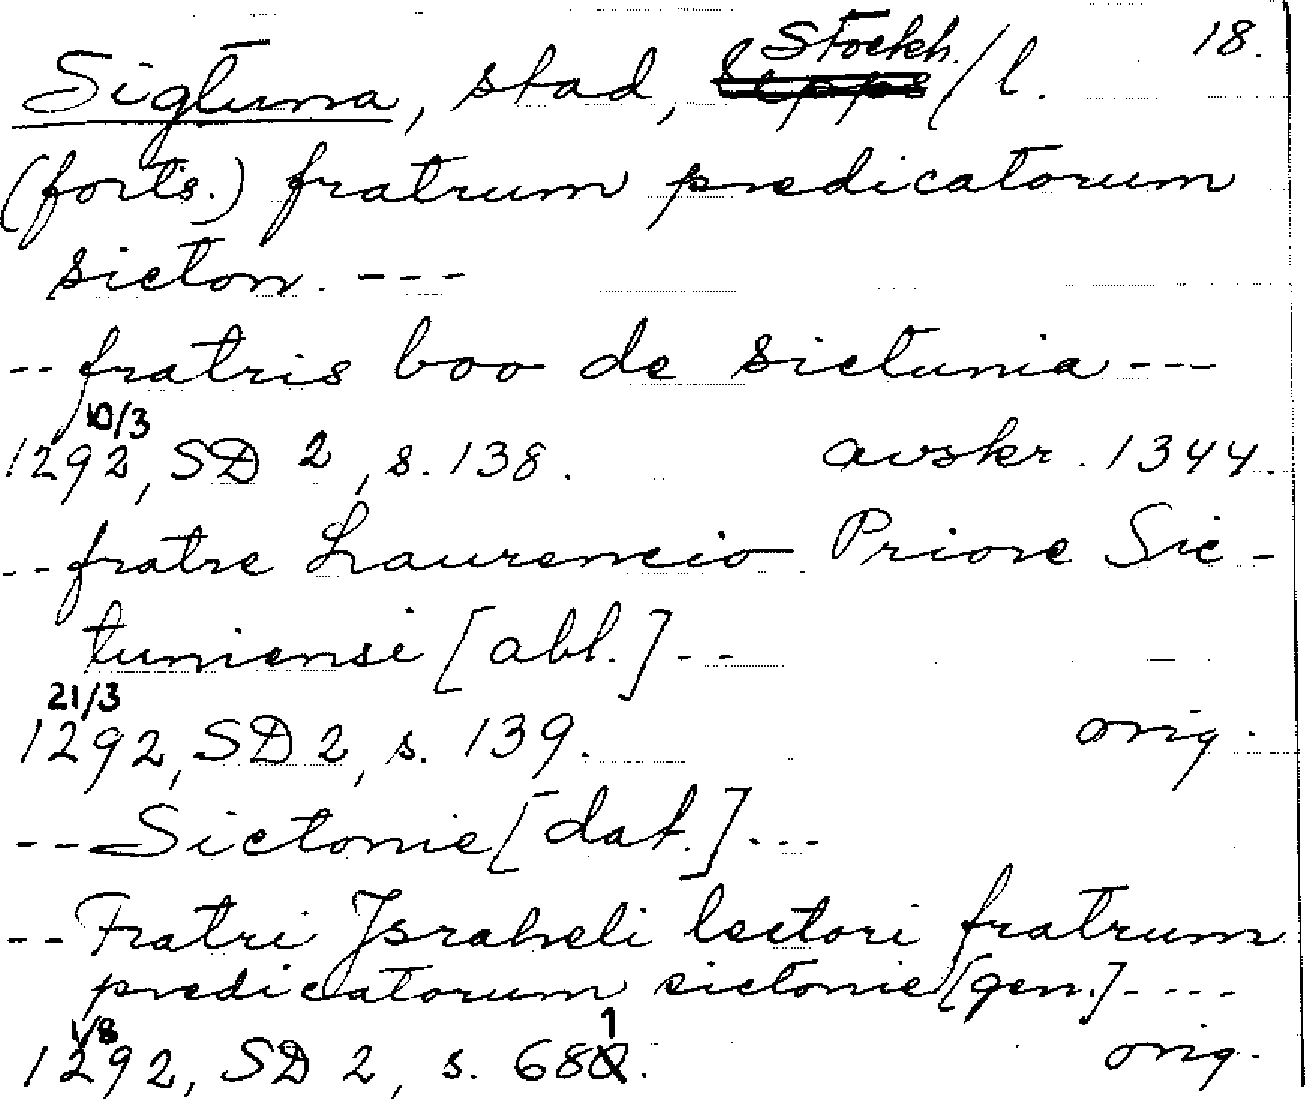 18.
Sigtuna, stad, Stockh./l.
(forts.) fratrum predicatorum
sicton. ---
-- fratris boo de sictunia ---
10/3
1292, SD 2, s. 138. avskr. 1344.
-- fratre Laurencio Priore Sic-
tuniensi [abl.] ---
21/3
1292, SD 2, s. 139. orig.
-- Sictonie [dat.] ---
-- Fratri Jsraheli lectori fratrum
predicatorum sictonie [gen.] ----
1/8
1292, SD 2, s. 681. orig.